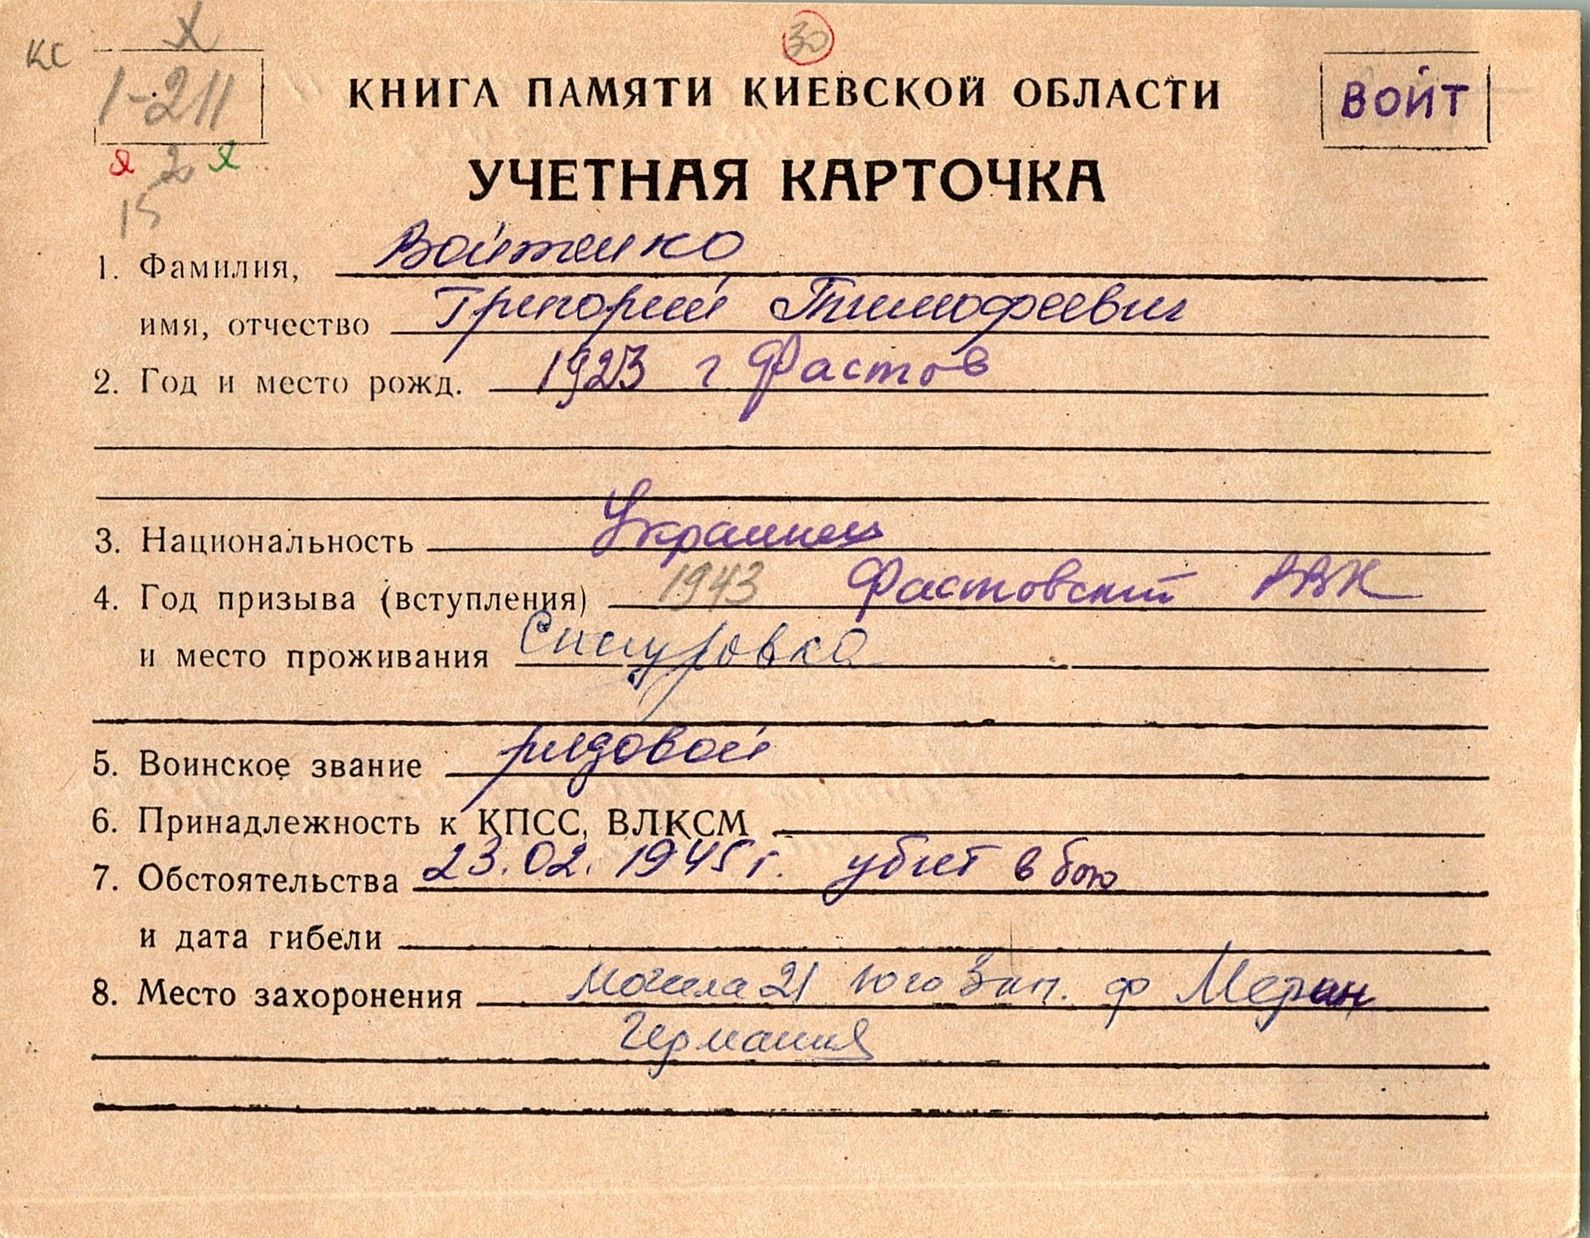 КС
Х
30
1-211
КНИГА ПАМЯТИ КИЕВСКОЙ ОБЛАСТИ
ВОЙТ
2
15
УЧЕТНАЯ КАРТОЧКА
1. Фамилия, Войтенко
имя, отчество Григорий Тимофеевич
2. Год и место рожд. 1923 г Фастов
3. Национальность Украинец
4. Год призыва (вступления) 1943 Фастовский РВК
и место проживания Снигуровка
5. Воинское звание рядовой
6. Принадлежность к КПСС, ВЛКСМ
7. Обстоятельства 23.02.1945 г. убит в бою
и дата гибели
8. Место захоронения могила 21 юго зап. ф
Германия